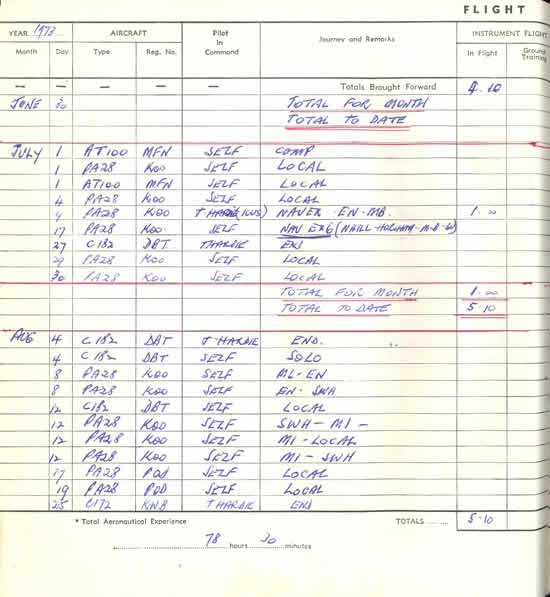 FLIGHT
YEAR 1973 AIRCRAFT Pilot In Command Journey and Remarks INSTRUMENT FLIGHT
Month Day Type Reg. No. In Flight Ground Training
— — — — — Totals Brought Forward 4.10
JUNE 30 TOTAL FOR MONTH
TOTAL TO DATE
JULY 1 AT100 MFN SELF COMP
1 PA28 KOO SELF LOCAL
1 AT100 MFN SELF LOCAL
4 PA28 KOO SELF LOCAL
9 PA28 KOO T HARDIE (ICUS) NAVEX EN-MB. 1.00
17 PA28 KOO SELF NAV EX6 (NHILL-HORSHAM-M-B-
27 C182 DBT T HARDIE END
29 PA28 KOO SELF LOCAL
30 PA28 KOO SELF LOCAL
TOTAL FOR MONTH 1.00
TOTAL TO DATE 5-10
AUG 4 C182 DBT T HARDIE END.
4 C182 DBT SELF SOLO
8 PA28 KOO SELF ML-EN
8 PA28 KOO SELF EN-SWH
12 C182 DBT SELF LOCAL
12 PA28 KOO SELF SWH-MI-
12 PA28 KOO SELF MI-LOCAL
12 PA28 KOO SELF MI-SWH
17 PA28 POD SELF LOCAL
19 PA28 POD SELF LOCAL
25 C172 KNB T HARDIE END
* Total Aeronautical Experience TOTALS ........ 5-10
78 hours 30 minutes